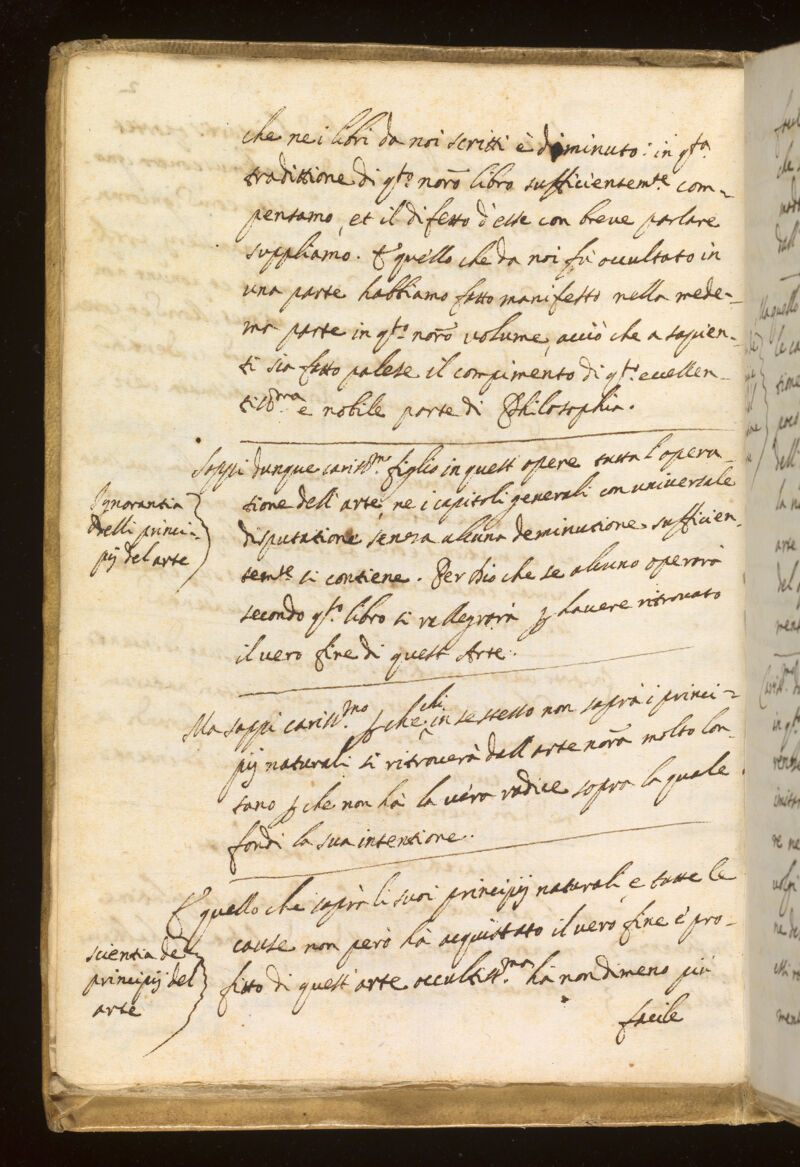 che ne i libri da noi scritti è diminuto: in q.ta
tradittione di q.to norõ libro sufficientem.te com-
pensamo, et il difetto d'esse con breve parlare
suppliamo. E quello che da noi fu occultato in
una parte habbiamo fatto manifesto nella mede-
ma parte in q.to norõ volume, acciò che a sapien-
ti sia fatto palese il compimento di q.ta eccellen-
tiss.ma e nobile parte di Philosophia.
Sappi dunque cariss.mo figlio in quest opere tutta l'opera-
tione dell'arte, ne i capitoli generali con universale
disputatione senza alcuna deminutione sufficien-
tem.te si contiene. Per Dio che se alcuno operarà
secondo q.to libro si rallegrarà p havere ritrovato
il vero fine di quest Arte.
Ignorantia
delli princi-
pij del arte
Ma sappi cariss.mo p che chi in se stesso non saprà i princi-
pij naturali si ritroverà dall'arte norã molto lon-
tano p che non hà la vera radice sopra la quale
fondi la sua intentione.
E quello che saprà li suoi principij naturali, e tutte le
cause non però hà acquistato il vero fine è pro-
fitto di quest'arte occultiss.ma hà nondimeno più
facile
scientia de
principij del
arte